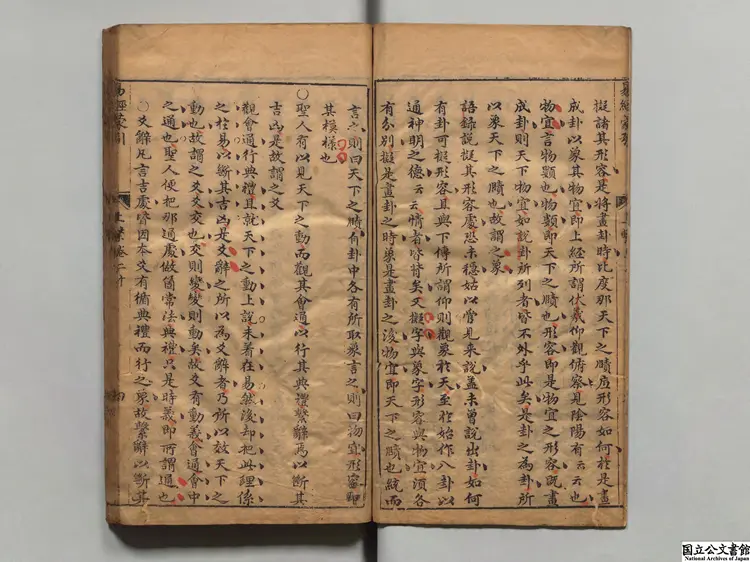 易經蒙引
擬諸其形容是將畫卦時比度那天下之賾底形容如何於是畫
成卦以象其物宜即上經所謂伏羲仰觀俯察見陰陽有云云也
物宜言物類也物類即天下之賾也形容即是物宜之形容既畫
成卦則天下物宜如說卦所列者皆不外乎此矣是卦之為卦所
以象天下之賾也故謂之象
語錄說擬其形容處思未穩姑以管見來說蓋未曾說出卦如何
有卦可擬形容耳與下傳所謂仰則觀象於天至於始作八卦以
通神明之德云云情者皆背矣又擬字與象字形容與物宜須各
有分別擬是畫卦之時象是畫卦之後物宜即天下之賾也統而
言之則曰天下之賾有卦中各有所取象言之則曰物宜形容即
其模樣也
○聖人有以見天下之動而觀其會通以行其典禮繫辭焉以斷其
吉凶是故謂之爻
觀會通行典禮且就天下之動上說未著在易然後却把此理係
之於易以斷其吉凶是爻辭之所以為爻辭者乃所以效天下之
動也故謂之爻爻交也交則變變則動矣故爻有動義會通會中
之通也聖人便把那通處做箇常法典禮只是時義即所謂通也
○爻辭凡言吉處皆因本爻有循典禮而行之象故繫辭以斷其
易經蒙引
国立公文書館
National Archives of Japan